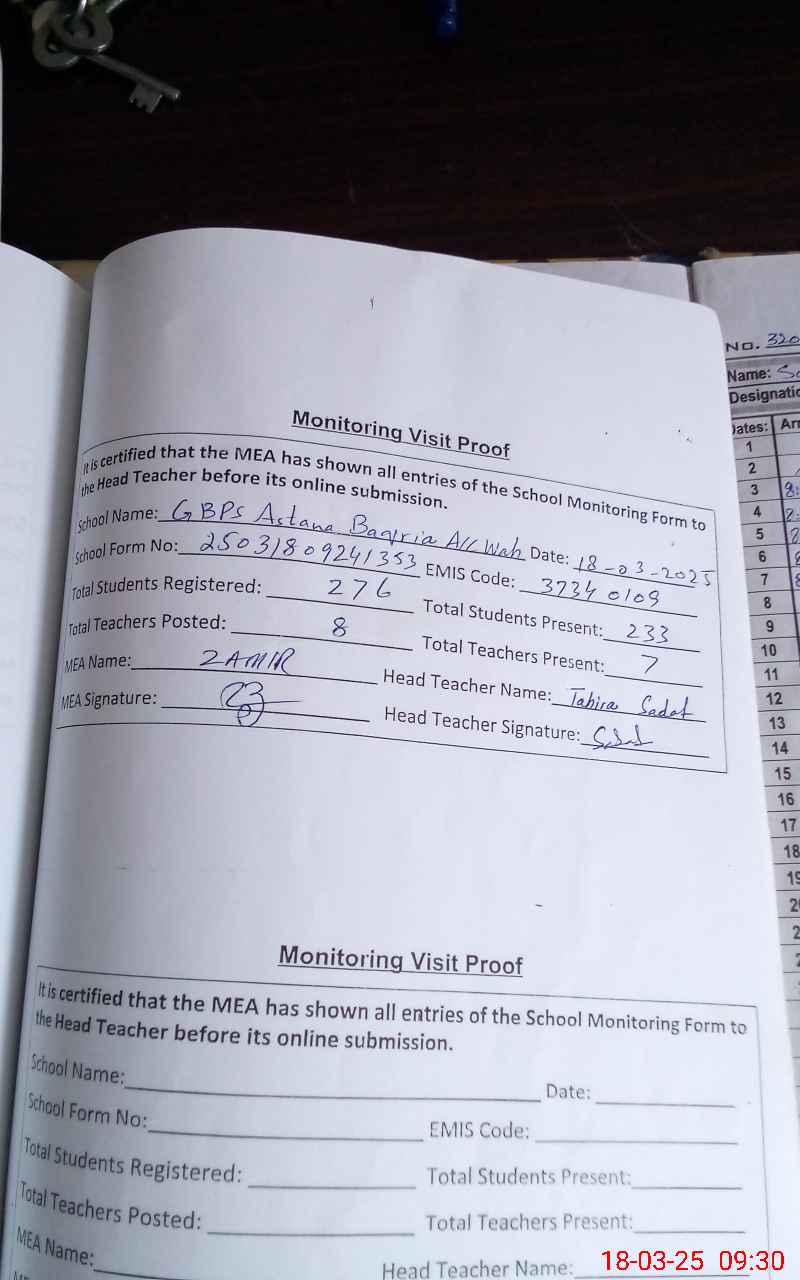 Monitoring Visit Proof
It is certified that the MEA has shown all entries of the School Monitoring Form to
the Head Teacher before its online submission.
School Name: GBPS Astana Baqria A/C Wah Date: 18-03-2025
School Form No: 25031809241353 EMIS Code: 37340109
Total Students Registered: 276 Total Students Present: 233
Total Teachers Posted: 8 Total Teachers Present: 7
MEA Name: ZAMIR Head Teacher Name: Tahira Sadat
MEA Signature: Head Teacher Signature:
Monitoring Visit Proof
It is certified that the MEA has shown all entries of the School Monitoring Form to
the Head Teacher before its online submission.
School Name: Date:
School Form No: EMIS Code:
Total Students Registered: Total Students Present:
Total Teachers Posted: Total Teachers Present:
MEA Name: Head Teacher Name:
No. 320
Name:
Dates:
1
2
3 8:
4
5
6
7
8
9
10
11
12
13
14
15
16
17
18
18-03-25 09:30